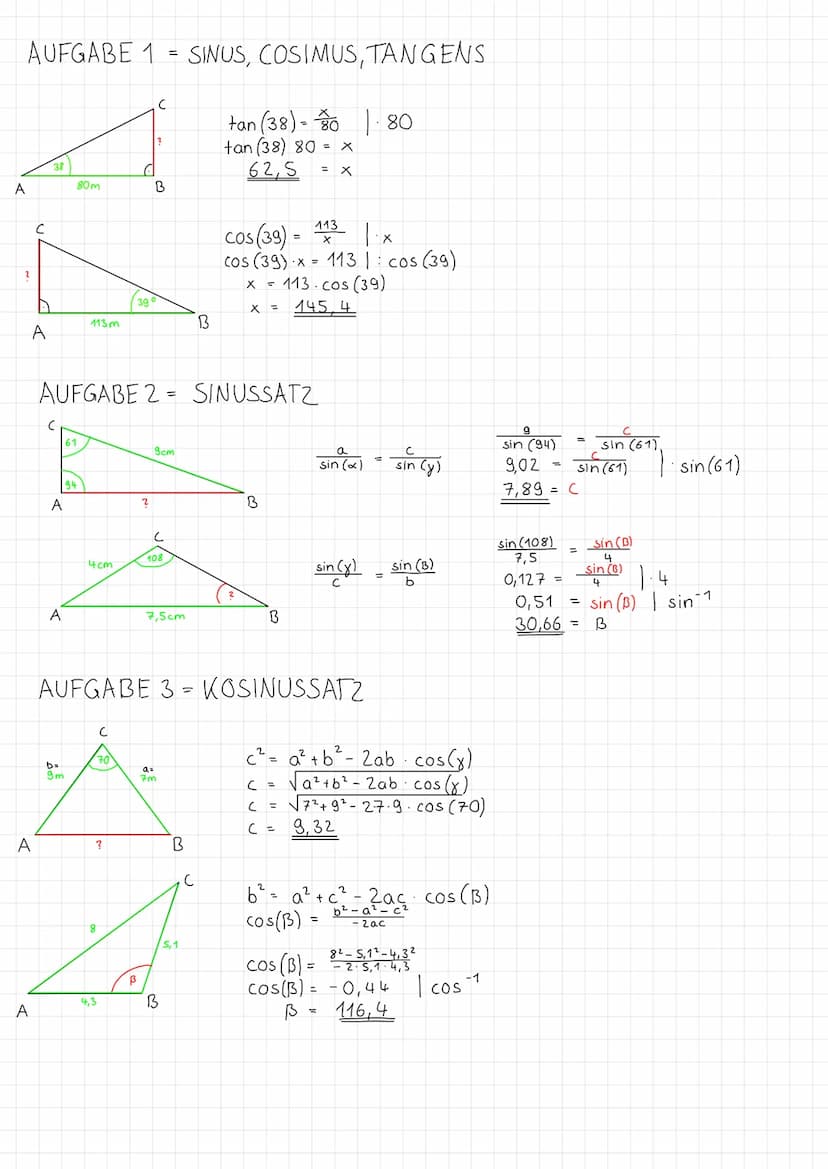 AUFGABE 1 = SINUS, COSIMUS, TANGENS
C
38
?
A
80m
B
tan(38) = x/80 | · 80
tan(38) 80 = x
62,5 = x
C
?
39°
A
113m
B
cos(39) = 113/x | · x
cos(39) · x = 113 | : cos(39)
x = 113 · cos(39)
x = 145,4
AUFGABE 2 = SINUSSATZ
C
61
9cm
94
A
?
B
a/sin(α) = c/sin(γ)
9/sin(94) = c/sin(61)
9,02 = c/sin(61) | · sin(61)
7,89 = c
C
4cm
108
?
A
7,5cm
B
sin(γ)/c = sin(B)/b
sin(108)/7,5 = sin(B)/4
0,127 = sin(B)/4 | · 4
0,51 = sin(B) | sin⁻¹
30,66 = B
AUFGABE 3 = KOSINUSSATZ
C
b=
9m
70
a=
7m
A
?
B
c² = a² + b² - 2ab · cos(γ)
c = √a² + b² - 2ab · cos(γ)
c = √7² + 9² - 27 · 9 · cos(70)
c = 9,32
C
8
5,1
β
A
4,3
B
b² = a² + c² - 2ac · cos(B)
cos(B) = b² - a² - c²/-2ac
cos(B) = 8² - 5,1² - 4,3²/-2 · 5,1 · 4,3
cos(B) = -0,44 | cos⁻¹
β = 116,4